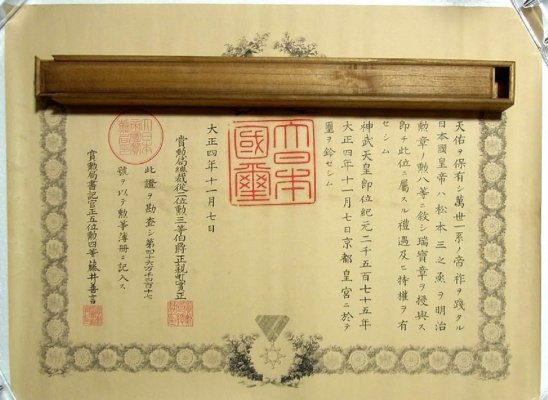 天佑ヲ保有シ萬世一系ノ帝祚ヲ踐タル
日本國皇帝ハ松本三之丞ヲ明治
勲章ノ勲八等ニ敍シ瑞寶章ヲ授與ス
即チ此位ニ屬スル禮遇及ヒ特權ヲ有
セシム
神武天皇即位紀元二千五百七十五年
大正四年十一月七日京都皇宮ニ於テ
璽ヲ鈐セシム
大日本
國璽
大正四年十一月七日
賞勲局總裁從二位勲三等伯爵正親町實正
此證ヲ勘査シ第四十六万千四百十七
號ヲ以テ勲等簿冊ニ記入ス
賞勲局書記官正五位勲四等藤井善言